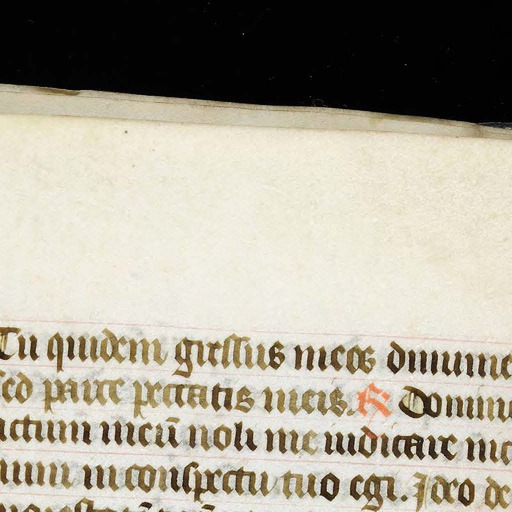 Tu quidem gressus meos dinume
sed parce peccatis meis. R Domine
actum meū noli me iudicare nic
num in conspectu tuo egi. Ideo de